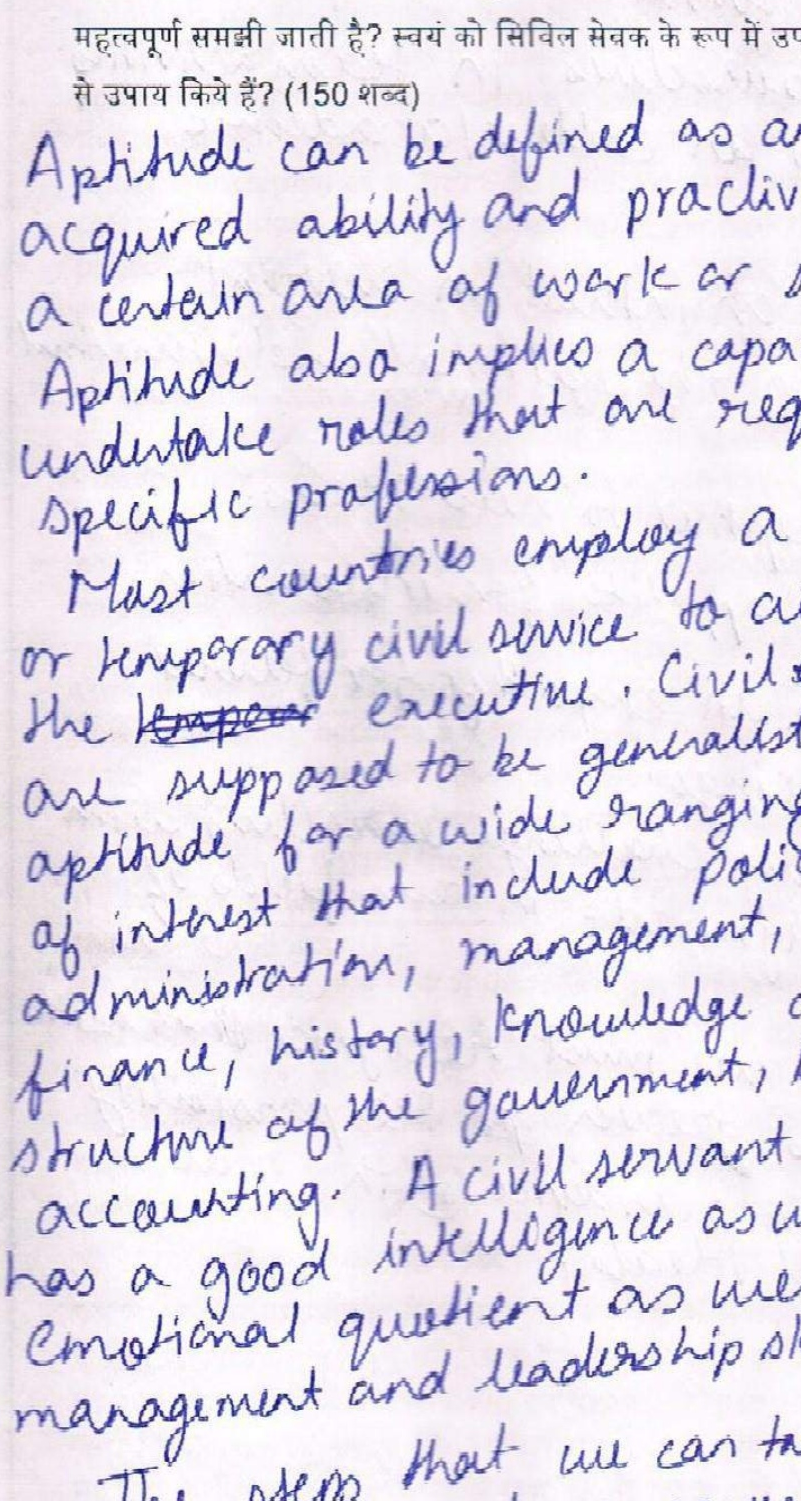 महत्वपूर्ण समझी जाती है? स्वयं को सिविल सेवक के रूप में उप
से उपाय किये हैं? (150 शब्द)
Aptitude can be defined as a
acquired ability and procliv
a certain area of work or s
Aptitude also implies a capa
undertake roles that are req
specific professions.
Most countries employ a
or temporary civil service to a
the executive. Civil s
are supposed to be generalist
aptitude for a wide ranging
of interest that include poli
administration, management,
finance, history, knowledge o
structure of the government,
accounting. A civil servant
has a good intelligence as w
emotional quotient as we
management and leadership sk
The steps that we can ta